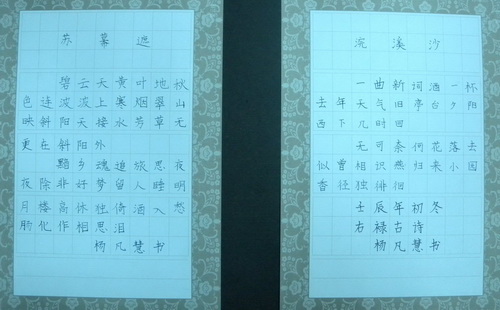 苏幕遮
碧云天黄叶地秋
色连波波上寒烟翠山
映斜阳天接水芳草无
更在斜阳外
黯乡魂追旅思夜
夜除非好梦留人睡明
月楼高休独倚酒入愁
肠化作相思泪
杨凡慧书
浣溪沙
一曲新词酒一杯
去年天气旧亭台夕阳
西下几时回
无可奈何花落去
似曾相识燕归来小园
香径独徘徊
壬辰年初冬
右录古诗
杨凡慧书